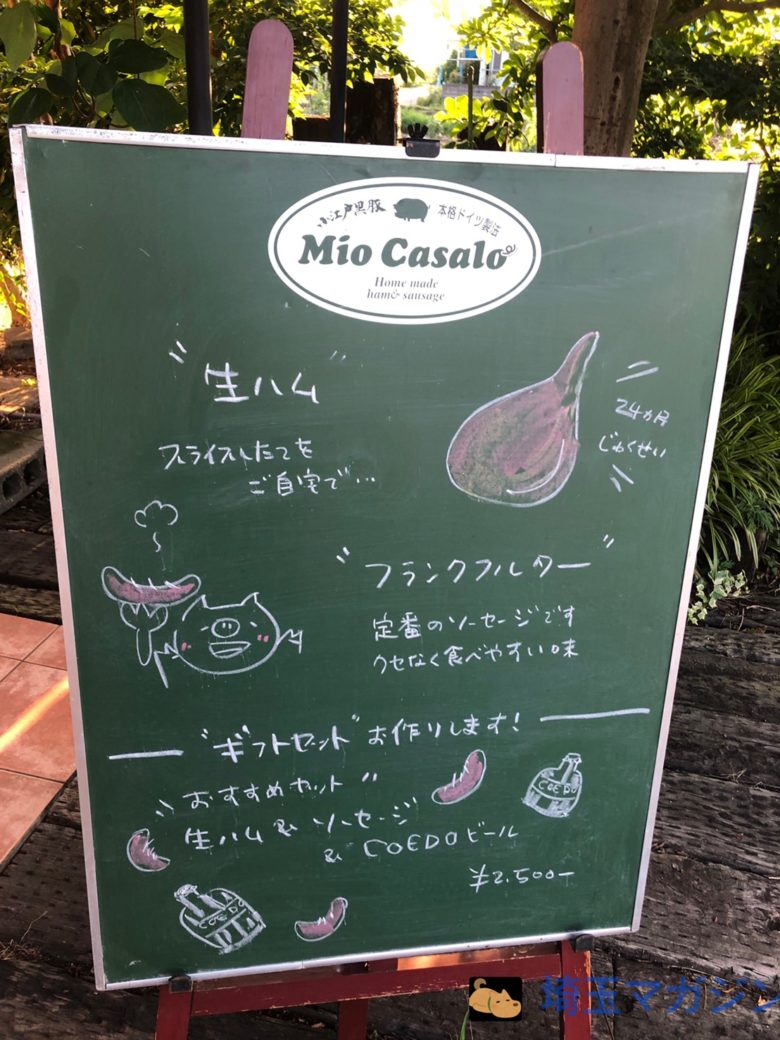 小江戸黒豚 本格ドイツ製法
Mio Casalo
Home made
ham & sausage
"生ハム"
スライスしたてを
ご自宅で…
24ヵ月
じゅくせい
"フランクフルター"
定番のソーセージです
クセなく食べやすい味
"ギフトセット"お作りします!
おすすめセット
生ハム & ソーセージ
& COEDOビール
¥2,500-
COEDO
COEDO
埼玉マガジン